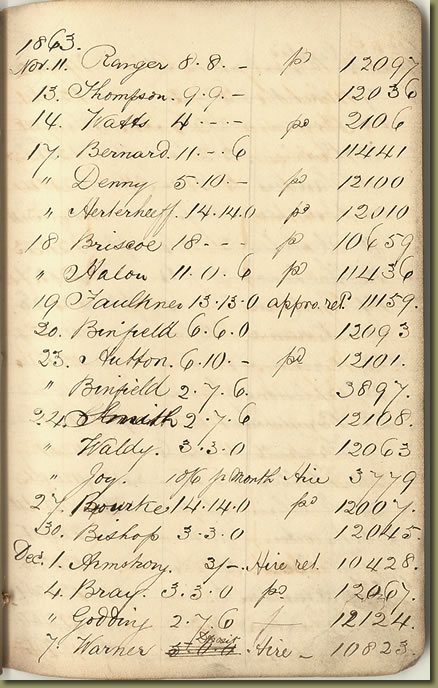 1863.
Nov. 11. Ranger 8.8.- pd 12097
13. Thompson. 9.9.- 12036
14. Watts 4 - - - pd 2106
17. Bernard. 11 - . 6 11441
" Denny 5.10.- pd 12100
" 14.14.0 pd 12010
18 Briscoe 18 - - - pd 10659
" 11.0.6 pd 11436
19 Faulkner 13.13.0 appro. ret. 11159.
20. Binfield 6.6.0 12093
23. Hutton. 6.10.- pd 12101.
" Binfield 2.7.6. 3897.
24. Smith 2.7.6 12108.
" Waldy. 3.3.0 12063
" Joy. 10/6 p Month Hire 3779
27. Bourke 14.14.0 pd 12007.
30. Bishop 3.3.0 12045.
Dec. 1. Armstrong. 3/-. Hire ret. 10428.
4. Bray. 3.3.0 pd 12067.
" Godding 2.7.6 12124.
7. Warner Deposit Hire - 10823